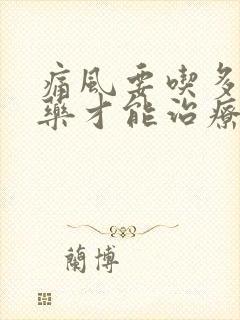 痛風要喫多
藥才能治療
蘭博